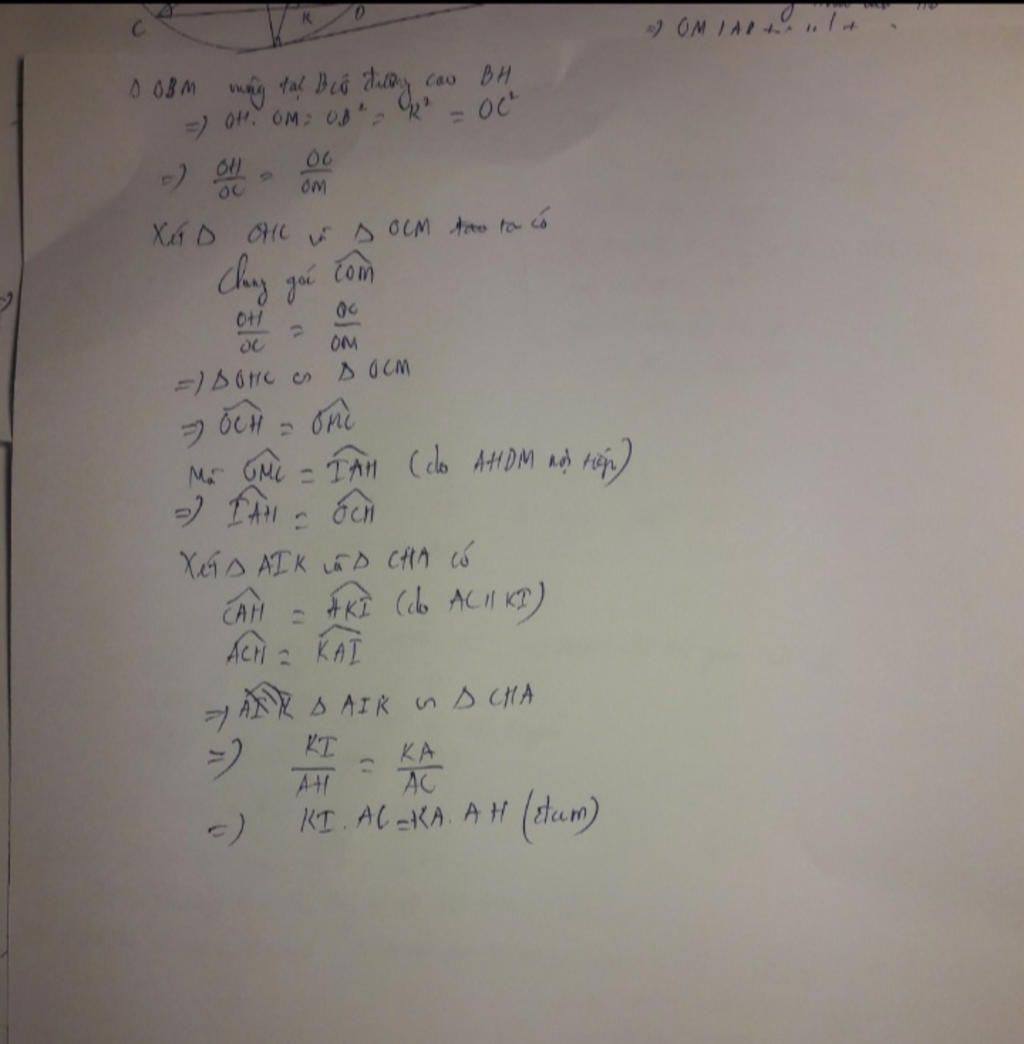 C K D
=> OM ⊥ AB
Δ OBM vuông tại B có đường cao BH
=> OH. OM = OB² = R² = OC²
=> OH/OC = OC/OM
Xét Δ OHC và Δ OCM ta có
Chung góc COM
OH/OC = OC/OM
=> Δ OHC ∽ Δ OCM
=> OCH = OMC
Mà OMC = IAH (do AHDM nội tiếp)
=> IAH = OCH
Xét Δ AIK và Δ CHA có
CAH = AKI (do AC // KI)
ACH = KAI
=> Δ AIK ∽ Δ CHA
=> KI/AH = KA/AC
=> KI . AC = KA. AH (đcm)